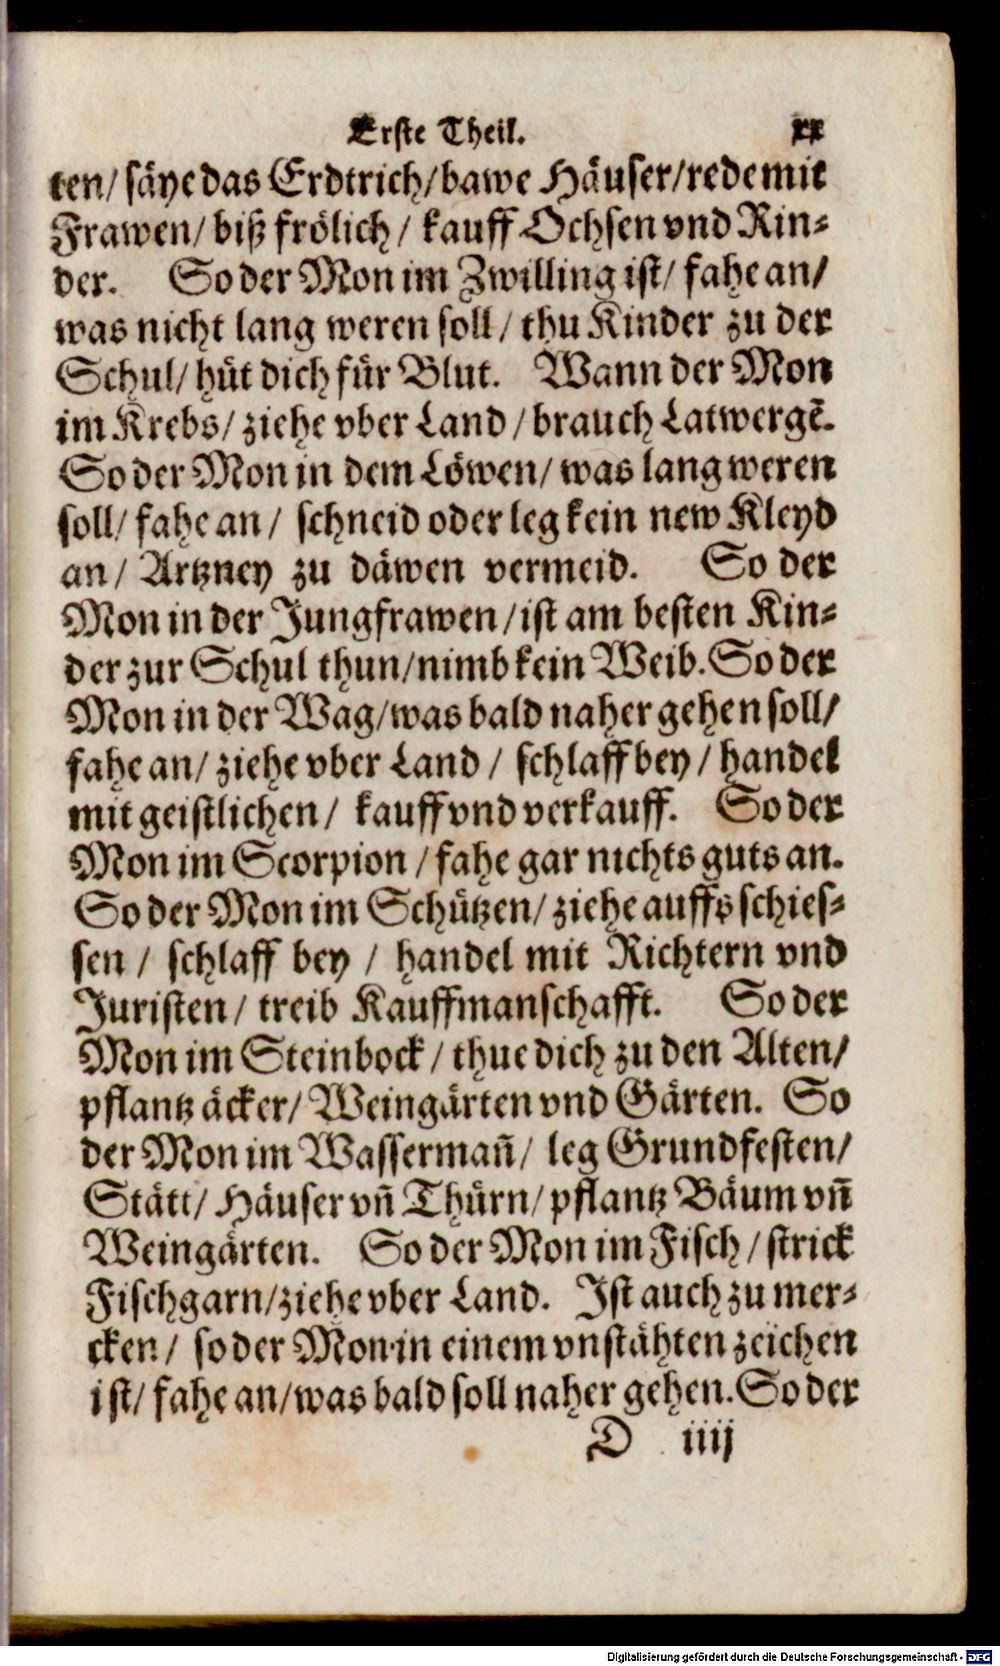 Erste Theil. xx
ten/ säye das Erdtrich/bawe Häuser/rede mit
Frawen/ biß frölich / kauff Ochsen vnd Rin-
der. So der Mon im Zwilling ist/ fahe an/
was nicht lang weren soll / thu Kinder zu der
Schul/ hüt dich für Blut. Wann der Mon
im Krebs/ ziehe vber Land / brauch Latwergẽ.
So der Mon in dem Löwen/ was lang weren
soll/ fahe an / schneid oder leg kein new Kleyd
an / Artzney zu däwen vermeid. So der
Mon in der Jungfrawen /ist am besten Kin-
der zur Schul thun/nimb kein Weib. So der
Mon in der Wag/was bald naher gehen soll/
fahe an/ ziehe vber Land / schlaff bey / handel
mit geistlichen / kauff vnd verkauff. So der
Mon im Scorpion / fahe gar nichts guts an.
So der Mon im Schützen/ ziehe auffs schies-
sen / schlaff bey / handel mit Richtern vnd
Juristen/ treib Kauffmanschafft. So der
Mon im Steinbock / thue dich zu den Alten/
pflantz äcker/ Weingärten vnd Gärten. So
der Mon im Wassermañ/ leg Grundfesten/
Stätt/ Häuser vñ Thürn/ pflantz Bäum vñ
Weingärten. So der Mon im Fisch / strick
Fischgarn/ziehe vber Land. Ist auch zu mer-
cken / so der Mon in einem vnstähten zeichen
ist/ fahe an/was bald soll naher gehen. So der
D iiij
Digitalisierung gefördert durch die Deutsche Forschungsgemeinschaft - DFG